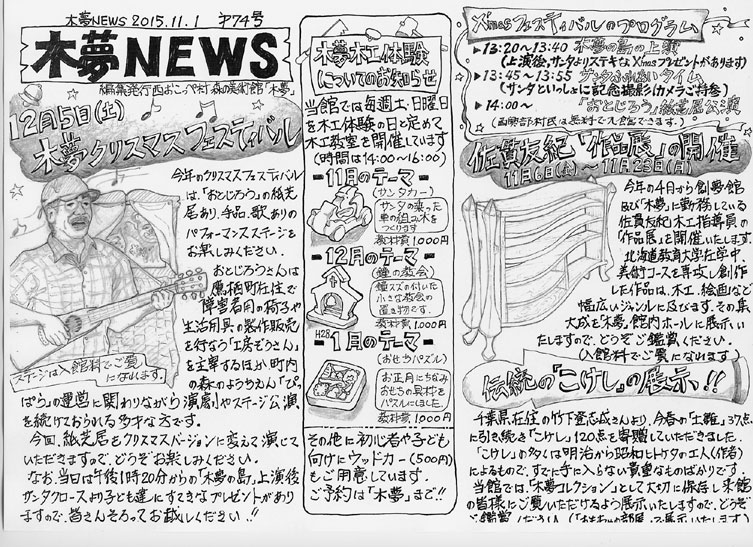 木夢NEWS 2015.11.1 第74号
木夢NEWS
編集発行 西おこっぺ村 森の美術館「木夢」
12月5日(土)
木夢クリスマスフェスティバル
今年のクリスマスフェスティバル
は、「おとじろう」の紙芝
居あり、手品、歌ありの
パフォーマンスステージを
お楽しみください。
おとじろうさんは
鷹栖町在住で
障害者用の椅子や
生活用具の製作販売
を行なう「工房ぞうさん」
を主宰するほか町内
の森のようちえん「ぴっ
ぱら」の運営に関わりながら演劇やステージ公演
を続けておられる多才な方です。
今回、紙芝居をクリスマスバージョンに変えて演じて
いただきますので、どうぞお楽しみください。
なお、当日は午後1時20分からの「木夢の島」上演後
サンタクロースより子ども達にすてきなプレゼントがあり
ますので、皆さんそろってお越しください!!
ステージは入館料でご覧
になれます。
木夢木工体験
についてのお知らせ
当館では毎週土・日曜日
を木工体験の日と定めて
木工教室を開催しています
(時間は14:00〜16:00)
11月のテーマ
(サンタカー)
サンタの乗った
車の組み木を
つくります
教材費1,000円
12月のテーマ
(鐘の教会)
鐘スズの付いた
小さな教会の
置き物です。
教材費1,000円
H28 1月のテーマ
(おせちパズル)
お正月にちなみ
おせちの具材を
パズルにしました
教材費1,000円
その他に初心者や子ども
向けにウッドカー(500円)
もご用意しています。
ご予約は「木夢」まで!!
Xmasフェスティバルのプログラム
▶13:20〜13:40 木夢の島の上演
(上演後、サンタよりステキなXmasプレゼントがあります)
▶13:45〜13:55 サンタふれあいタイム
(サンタといっしょに記念撮影!カメラご持参)
▶14:00〜 「おとじろう」紙芝居公演
(西興部村民は無料で入館できます。)
佐賀友紀「作品展」の開催
11月6日(金)〜11月23日(月)
今年の4月から創夢館
及び「木夢」に勤務している
佐賀友紀木工指導員の
「作品展」を開催いたします。
北海道教育大学在学中、
美術コースを専攻し創作
した作品は、木工、絵画など
幅広いジャンルに及びます。その集
大成を「木夢」館内ホールに展示い
たしますので、どうぞご鑑賞ください。
(入館料でご覧になれます)
伝統の「こけし」の展示!!
千葉県在住の竹下登志成さんより、今春の「土雛」37点
に引き続き「こけし」120点を寄贈していただきました。
「こけし」の多くは明治から昭和ヒトケタの工人(作者)
によるもので、すでに手に入らない貴重なものばかりです。
当館では、「木夢コレクション」として大切に保存し、来館
の皆様にご覧いただけるよう展示いたしますので、どうぞ
ご鑑賞ください。